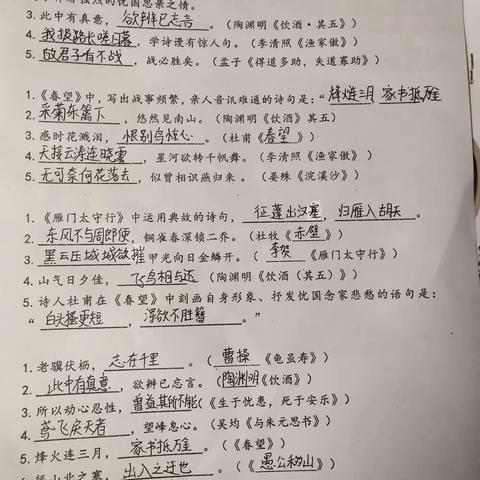 有强烈的忧国思亲之情。
3. 此中有真意，欲辩已忘言。（陶渊明《饮酒·其五》）
4. 我报路长嗟日暮，学诗谩有惊人句。（李清照《渔家傲》）
5. 故君子有不战，战必胜矣。（孟子《得道多助，失道寡助》）
1.《春望》中，写出战事频繁，亲人音讯难通的诗句是：“烽火连三月 家书抵万金
2. 采菊东篱下，悠然见南山。（陶渊明《饮酒》其五）
3. 感时花溅泪，恨别鸟惊心。（杜甫《春望》）
4. 天接云涛连晓雾，星河欲转千帆舞。（李清照《渔家傲》）
5. 无可奈何花落去，似曾相识燕归来。（晏殊《浣溪沙》）
1.《雁门太守行》中运用典故的诗句，征蓬出汉塞，归雁入胡天。
2. 东风不与周郎便，铜雀春深锁二乔。（杜牧《赤壁》）
3. 黑云压城城欲摧甲光向日金鳞开。（李贺《雁门太守行》）
4. 山气日夕佳，飞鸟相与还（陶渊明《饮酒（其五）》）
5. 诗人杜甫在《春望》中刻画自身形象、抒发忧国念家悲愁的语句是：
“白头搔更短，浑欲不胜簪。”
1. 老骥伏枥，志在千里。（曹操《龟虽寿》）
2. 此中有真意，欲辨已忘言。（陶渊明《饮酒》）
3. 所以动心忍性，曾益其所不能（《生于忧患，死于安乐》）
4. 鸢飞戾天者，望峰息心。（吴均《与朱元思书》）
5. 烽火连三月，家书抵万金。（《春望》）
征山北之塞，出入之迂也。（《愚公移山》）